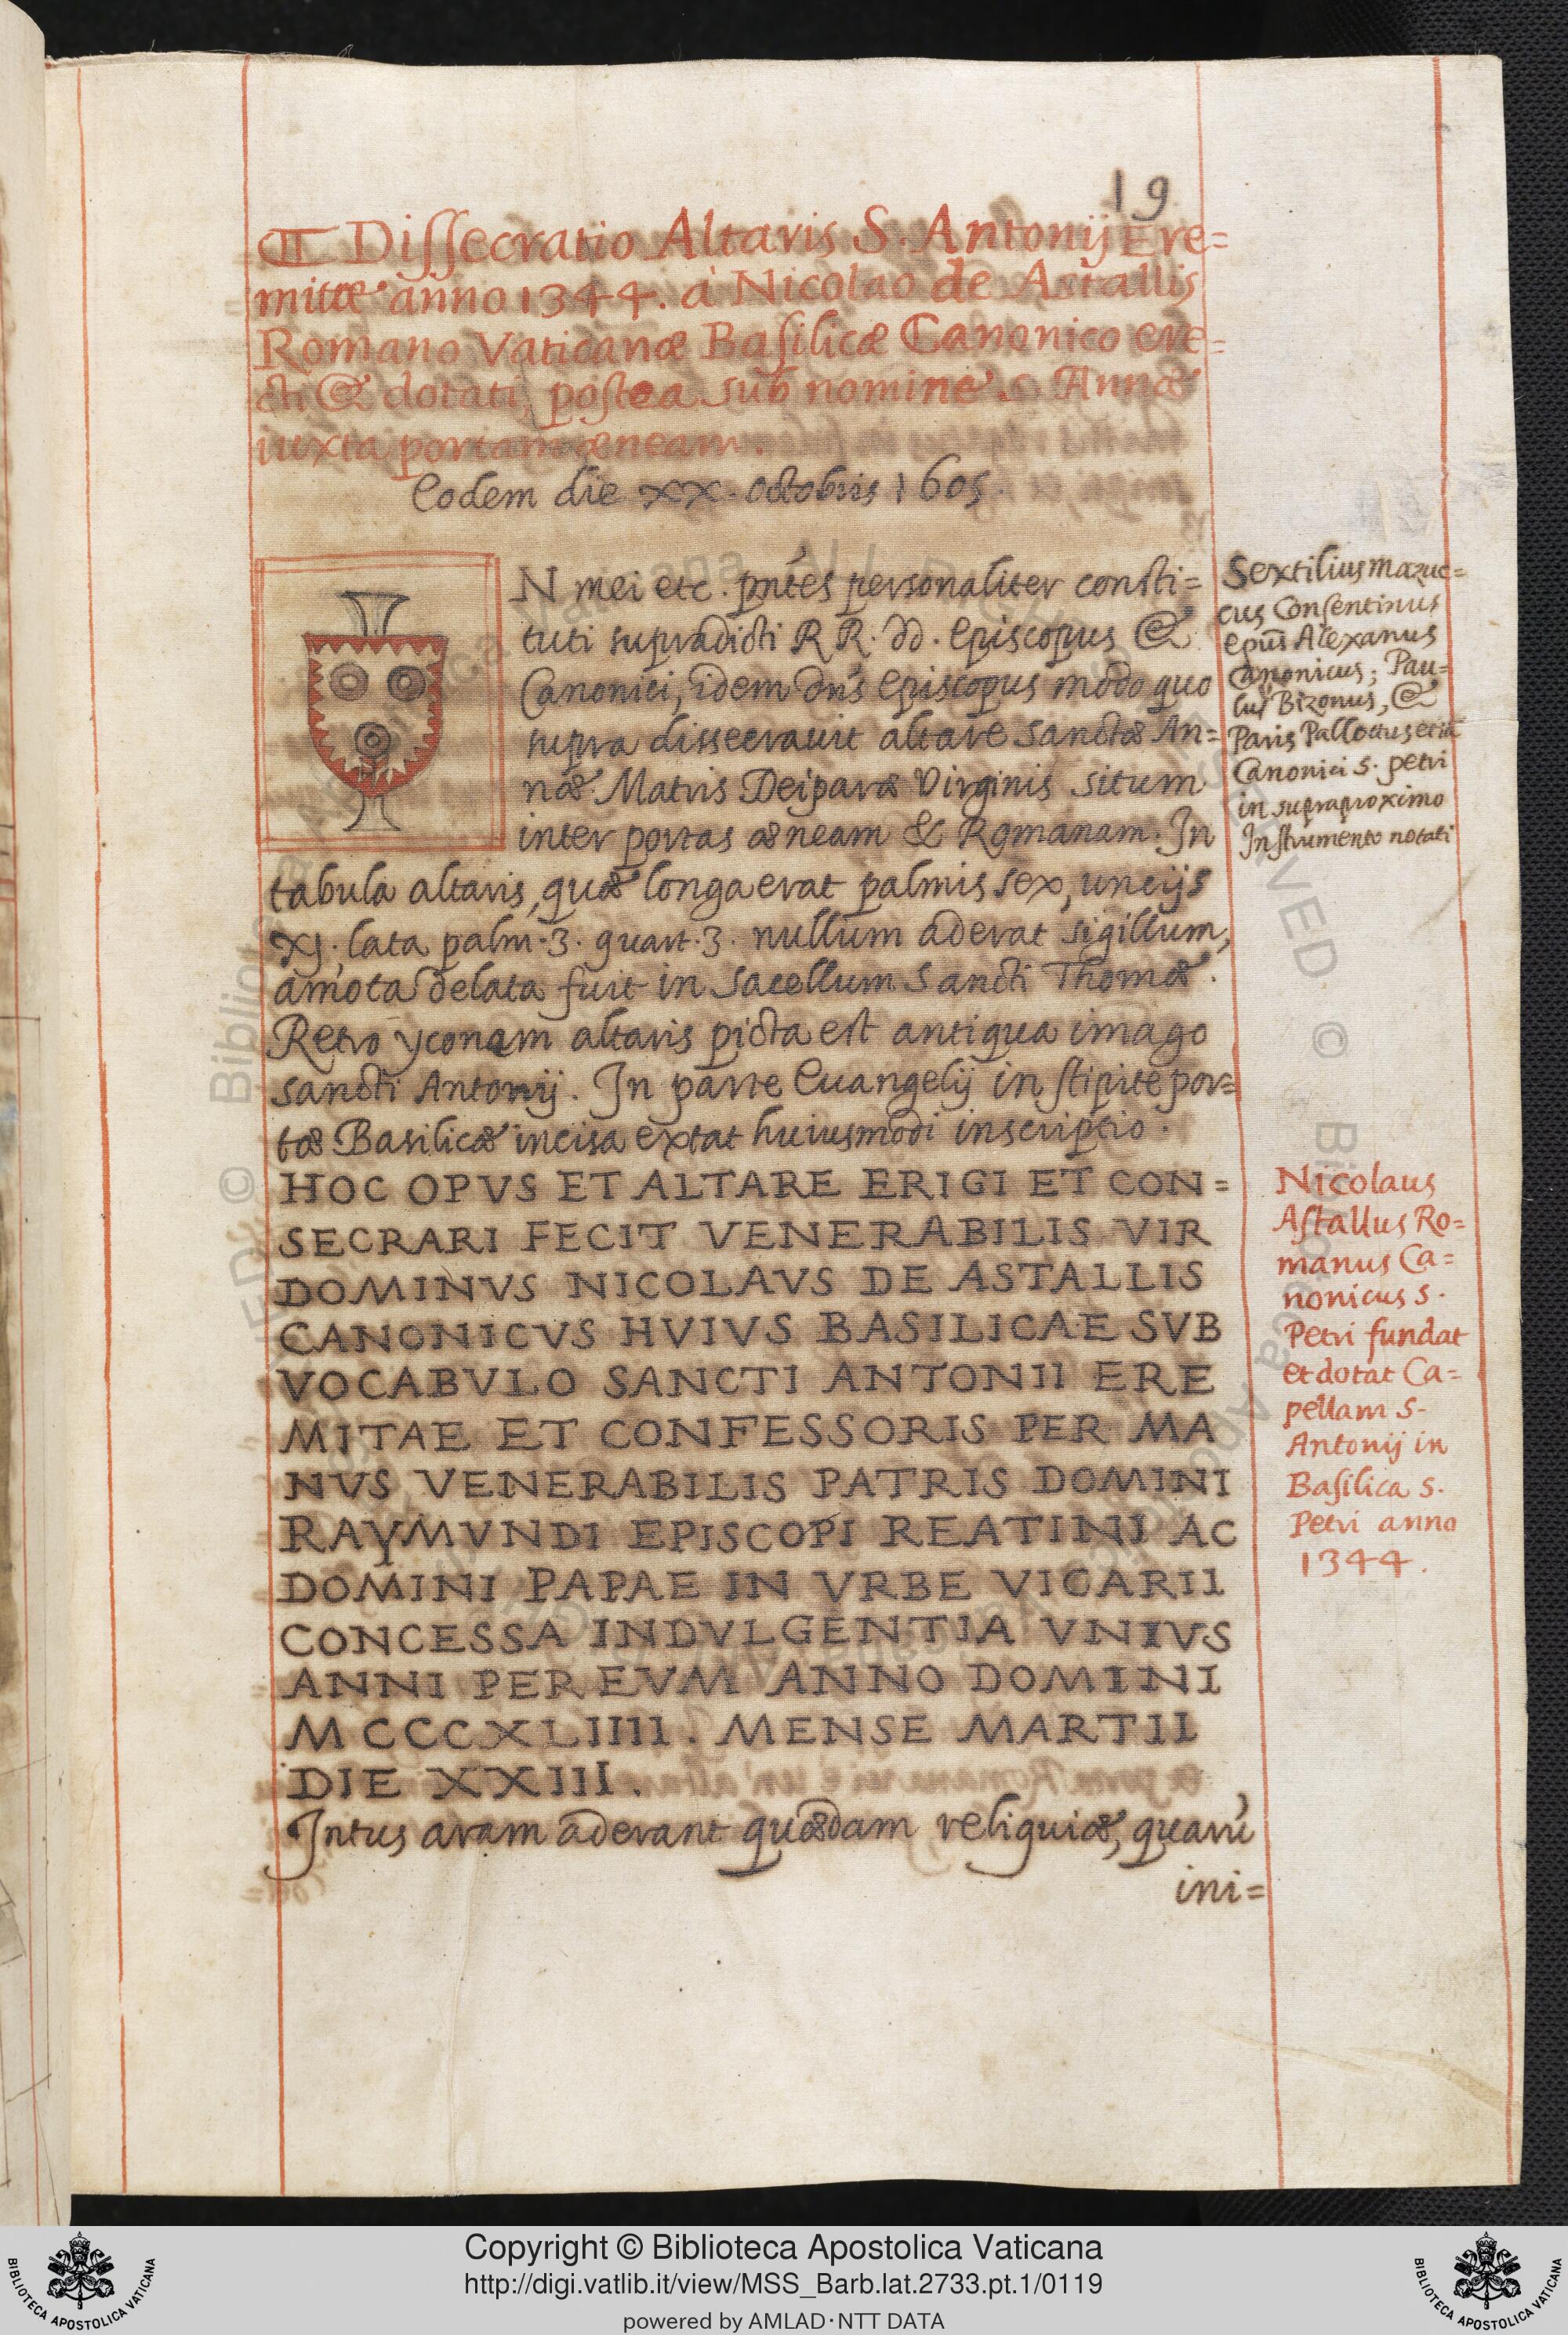 19
Disſecratio Altaris S. Antonij Ere=
mitæ anno 1344. à Nicolao de Astallis
Romano Vaticanæ Baſilicæ Canonico ere=
cti & dotati, poſtea sub nomine S. Annæ
iuxta portam æneam.
Eodem die XX. Octobris 1605.
IN mei etc. pn̄tes personaliter conſti=
tuti supradicti RR. dd. Episcopus &
Canonici, idem dn̄s Episcopus modo quo
supra dissecrauit altare Sanctæ An=
næ Matris Deiparæ Virginis situm
inter portas æneam & Romanam. In
tabula altaris, quæ longa erat palmis sex, uncijs
xj. lata palm. 3. quart. 3. nullum aderat sigillum,
amota delata fuit in Sacellum Sancti Thomæ.
Retro yconam altaris picta eſt antiqua imago
sancti Antonij. In parte Euangelij in ſtipite por=
tæ Basilicæ incisa extat huiusmodi inscriptio.
HOC OPVS ET ALTARE ERIGI ET CON=
SECRARI FECIT VENERABILIS VIR
DOMINVS NICOLAVS DE ASTALLIS
CANONICVS HVIVS BASILICAE SVB
VOCABVLO SANCTI ANTONII ERE
MITAE ET CONFESSORIS PER MA
NVS VENERABILIS PATRIS DOMINI
RAYMVNDI EPISCOPI REATINI AC
DOMINI PAPAE IN VRBE VICARII
CONCESSA INDVLGENTIA VNIVS
ANNI PER EVM ANNO DOMINI
MCCCXLIIII. MENSE MARTII
DIE XXIII.
Intus aram aderant quædam reliquiæ, quarū
ini=
Sextilius Mazuc=
cus Conſentinus
epūs Alexanus
Canonicus; Pau=
lus Bizonus, &
Paris Pallottus etiā
Canonici S. Petri
in supraproximo
Inſtrumento notati
Nicolaus
Aſtallus Ro=
manus Ca=
nonicus S.
Petri fundat
et dotat Ca=
pellam S.
Antonij in
Baſilica S.
Petri anno
1344.
Copyright © Biblioteca Apostolica Vaticana
http://digi.vatlib.it/view/MSS_Barb.lat.2733.pt.1/0119
powered by AMLAD·NTT DATA
BIBLIOTECA APOSTOLICA VATICANA
BIBLIOTECA APOSTOLICA VATICANA